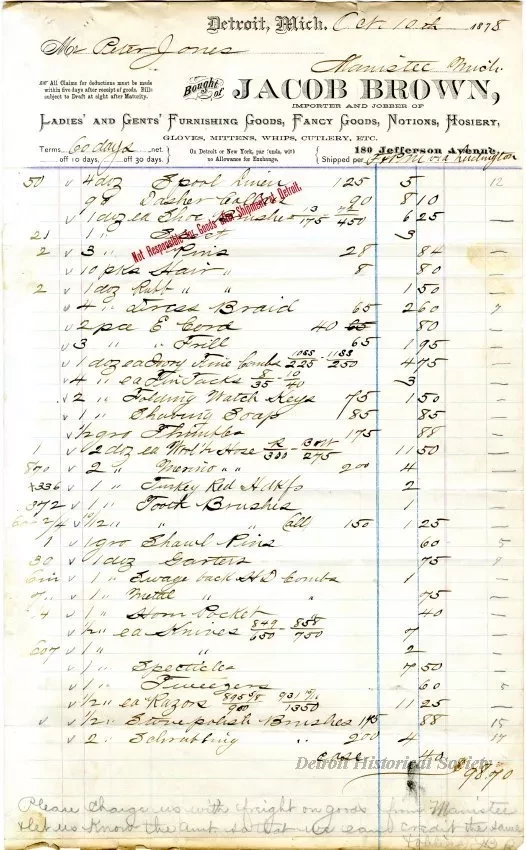 Detroit, Mich. Oct. 10th 1878
Mr Peter Jones
Manistee Mich.
All Claims for deductions must be made within five days after receipt of goods. Bills subject to Draft at sight after Maturity.
Bought of JACOB BROWN,
IMPORTER AND JOBBER OF
LADIES' AND GENTS' FURNISHING GOODS, FANCY GOODS, NOTIONS, HOSIERY,
GLOVES, MITTENS, WHIPS, CUTLERY, ETC.
Terms 60 days net. On Detroit or New York, par funds, with 180 Jefferson Avenue.
off 10 days. off 30 days. no Allowance for Exchange. Shipped per via Ludington
Not Responsible for Goods after Shipment at Detroit.
50 v 4 doz Spool Linen 125 5 12
v 98 Dasher 90 8 10
v 1 doz ea Shoe Brushes 3/175 450 6 25
21 v 1 " 3
2 v 3 " Pins 28 84
v 10 pks Hair " 8 80
2 v 1 doz Rubb " " 1 50
v 4 " Dress Braid 65 2 60 7
v 2 pce E Cord 40 65 80
v 3 " " Frill 65 1 95
v 1 doz ea Ivory Fine Combs 1055/225 1155/250 4 75
v 4 " ea Tin Tacks 8/35 10/40 3
v 2 " Folding Watch Keys 75 1 50
v 1 " Shaving Soap 85 85
v 1/2 gro Thimbles 175 88
1 v 2 doz ea Wool Hose 300 275 11 50
800 v 2 " Merino " " 200 4
+336 v 1 " Turkey Red Hdkfs 2
372 v 1 " Tooth Brushes 1
2/4 v 1/2 " " " 150 1 25
1 v 1 gro Shawl Pins 60 5
30 v 1 doz Garters 75 8
v 1 " Swage back H D Combs 1
v 1 " Metal " 75
4 v 1 " Horn Pocket 40
v 1/2 " ea Knives 849/650 858/750 7
607 v 1 " " 2
v 1 " Spectacles 7 50
v 1 " Tweezers 60 5
v 1/2 " ea Razors 900 1350 11 25
v v 1/2 " Stove polish Brushes 175 88 15
v 2 " Schrubbing " 200 4 17
case 40
$98.70
Detroit Historical Society
Please Charge us with freight on goods from Manistee
& let us know the amt so that we can credit the same